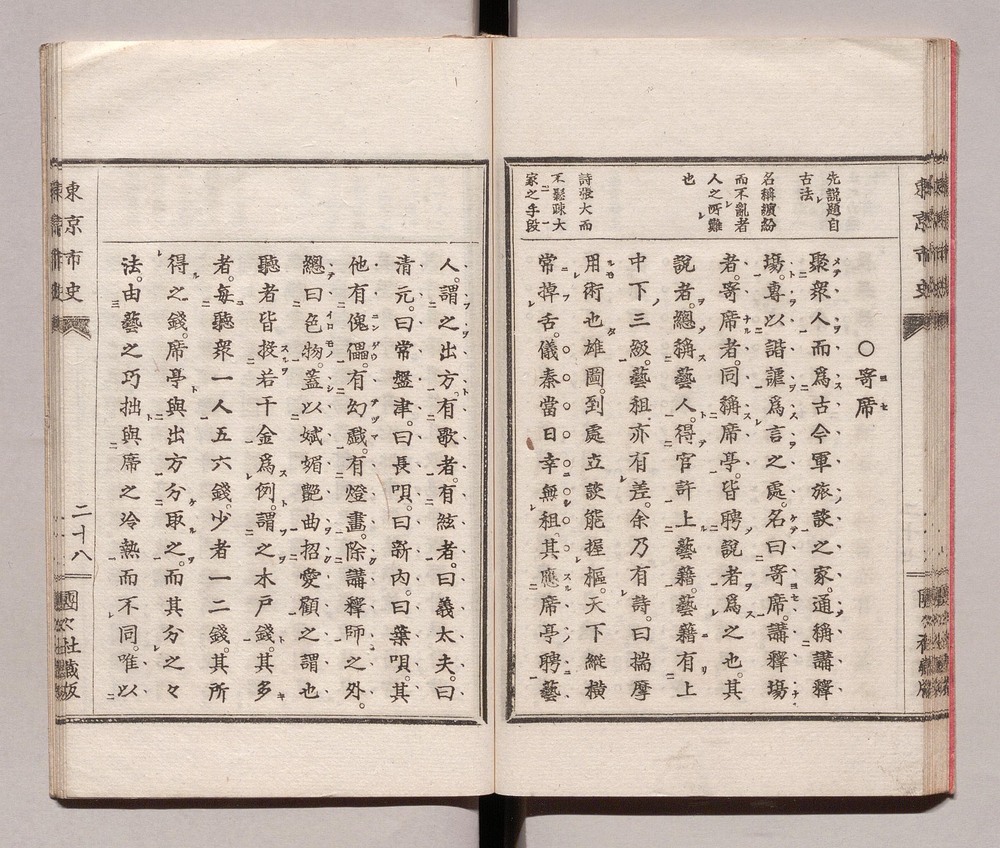 東京市史
先說題自
古法
名稱繽紛
而不亂者
人之所難
也
詩張大而
不鬆疎大
家之手段
○寄席
聚衆人而爲古今軍旅談之家。通稱講釋
塲。專以諧謔爲言之處。名曰寄席。講釋塲
者。寄席者。同稱席亭。皆聘說者爲之也。其
說者。總稱藝人。得官許上藝籍。藝籍有上
中下三級。藝祖亦有差。余乃有詩。曰揣摩
用術也雄圖。到處立談能握樞。天下縱橫
常掉舌。儀秦當日幸無租。其應席亭聘藝
人。謂之出方。有歌者。有絃者。曰義太夫。曰
清元。曰常盤津。曰長唄。曰新內。曰葉唄。其
他有傀儡。有幻戲。有燈畫。除講釋師之外。
總曰色物。蓋以娬媚艷曲招愛顧之謂也
聽者皆投若干金爲例。謂之木戶錢。其多
者。每聽衆一人五六錢。少者一二錢。其所
得之錢。席亭與出方分取之。而其分之々
法。由藝之巧拙與席之冷熱而不同。唯以
東京市史
二十八